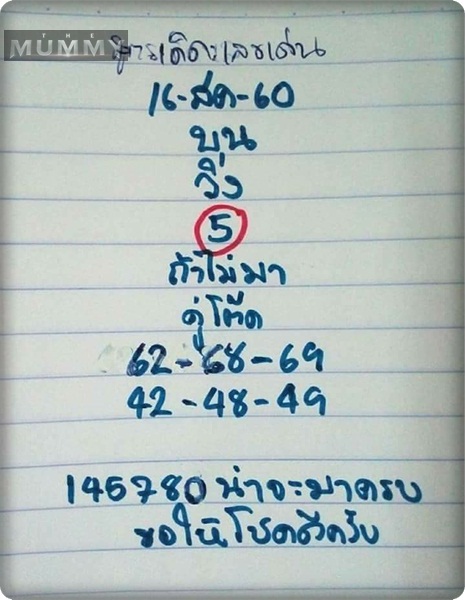 THE
MUMMY
สูตรเด็ดเลขเด่น
16-สค-60
บน
วิ่ง
5
ถ้าไม่มา
คู่โต๊ด
62-68-69
42-48-49
145780 น่าจะมาครบ
ขอให้โชคดีครับ